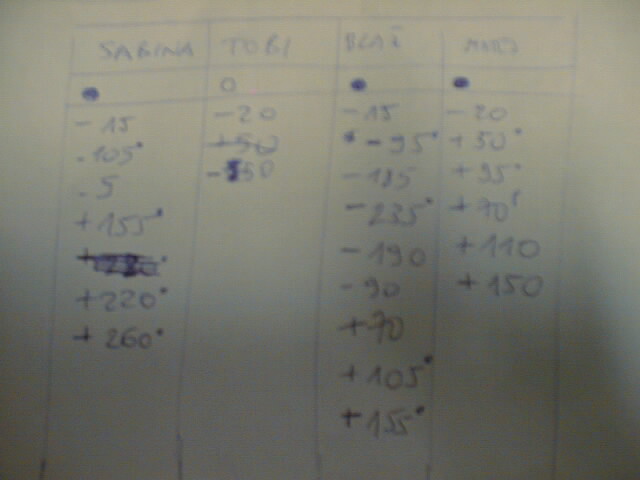 SABINA TOBI BLAŽ MATEJ
-15 -20 -15 -20
-105 -95 +50
-5 -185 +95
+155 -235 +70
-190 +110
+220 -90 +150
+260 +70
+105
+155